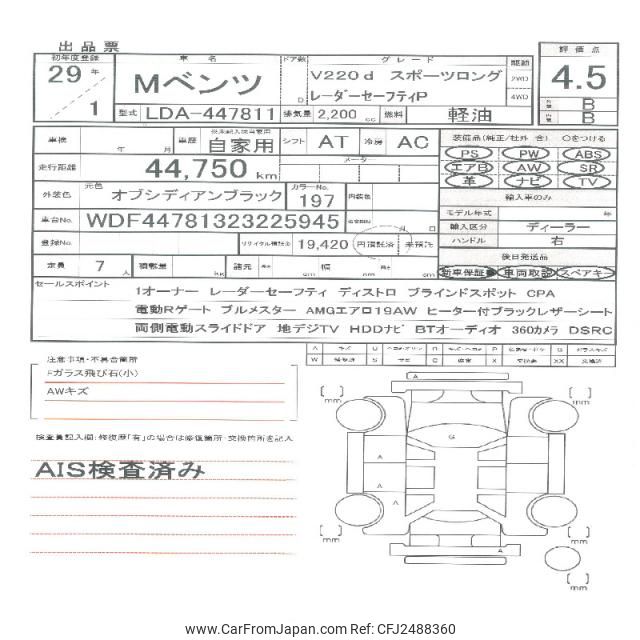 出品票
初年度登録 29 年 1
車名 Mベンツ
ドア数 D
グレード V220d スポーツロング
レーダーセーフティP
駆動 2WD 4WD
評価点 4.5
B
B
型式 LDA-447811 排気量 2,200 cc 燃料 軽油
車検 年 月 車歴 自家用 シフト AT 冷房 AC
走行距離 44,750 km メーター
装備品(純正/社外 含) ○をつける
PS PW ABS
エアB AW SR
革 ナビ TV
外装色 元色 オブシディアンブラック カラーNo. 197 内装色
輸入車のみ
モデル年式 年
車台No. WDF44781323225945
輸入区分 ディーラー
登録No. リサイクル預託金 19,420 円預託済 未預託
ハンドル 右
定員 7 人 積載量 kg 諸元 長さ cm 幅 cm 高さ cm
後日発送品
新車保証 車両取説 スペアキー
セールスポイント
1オーナー レーダーセーフティ ディストロ ブラインドスポット CPA
電動Rゲート ブルメスター AMGエアロ19AW ヒーター付ブラックレザーシート
両側電動スライドドア 地デジTV HDDナビ BTオーディオ 360カメラ DSRC
注意事項・不具合箇所
Fガラス飛び石(小)
AWキズ
検査員記入欄:修復歴「有」の場合は修復箇所・交換箇所を記入
AIS検査済み
A
G
A
A
A
A
mm
mm
mm
mm
mm
www.CarFromJapan.com Ref: CFJ2488360